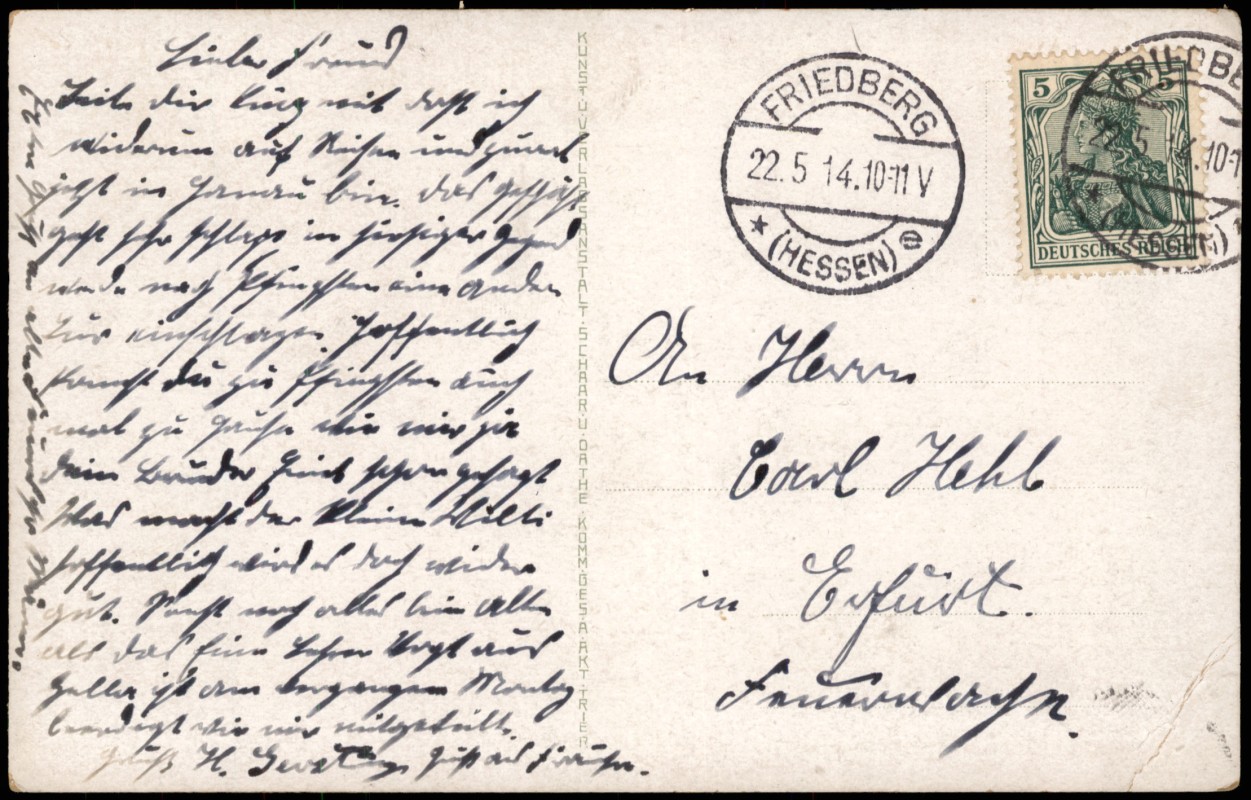 Lieber Freund
Teile dir kurz mit daß ich
widerum auf Reisen und zwar
jetzt in Hanau bin. Das Geschäft
geht sehr schlapp in hiesiger Gegend
werde nach Pfingsten eine andere
Tur einschlagen. Hoffentlich
kommst du zu Pfingsten auch
mal zu Hause wie mir ja
dein Bruder schon gesagt
Was macht der kleine Willi
hoffentlich wird es doch wieder
gut. Sonst noch alles beim Alten
als das Lehrer Vogt aus
ist am vergangenen Montag
beerdigt wie mir mitgeteilt.
Gruß H.
KUNST U. VERLAGSANSTALT SCHAAR U. DATHE KOMM. GES. A. AKT. TRIER
FRIEDBERG
22.5 14.10-11 V
* (HESSEN) e
5 5
DEUTSCHES REICH
FRIEDBE
22.5 14.10-1
An Herrn
Carl Hehl
in Erfurt.
Feuerwache.